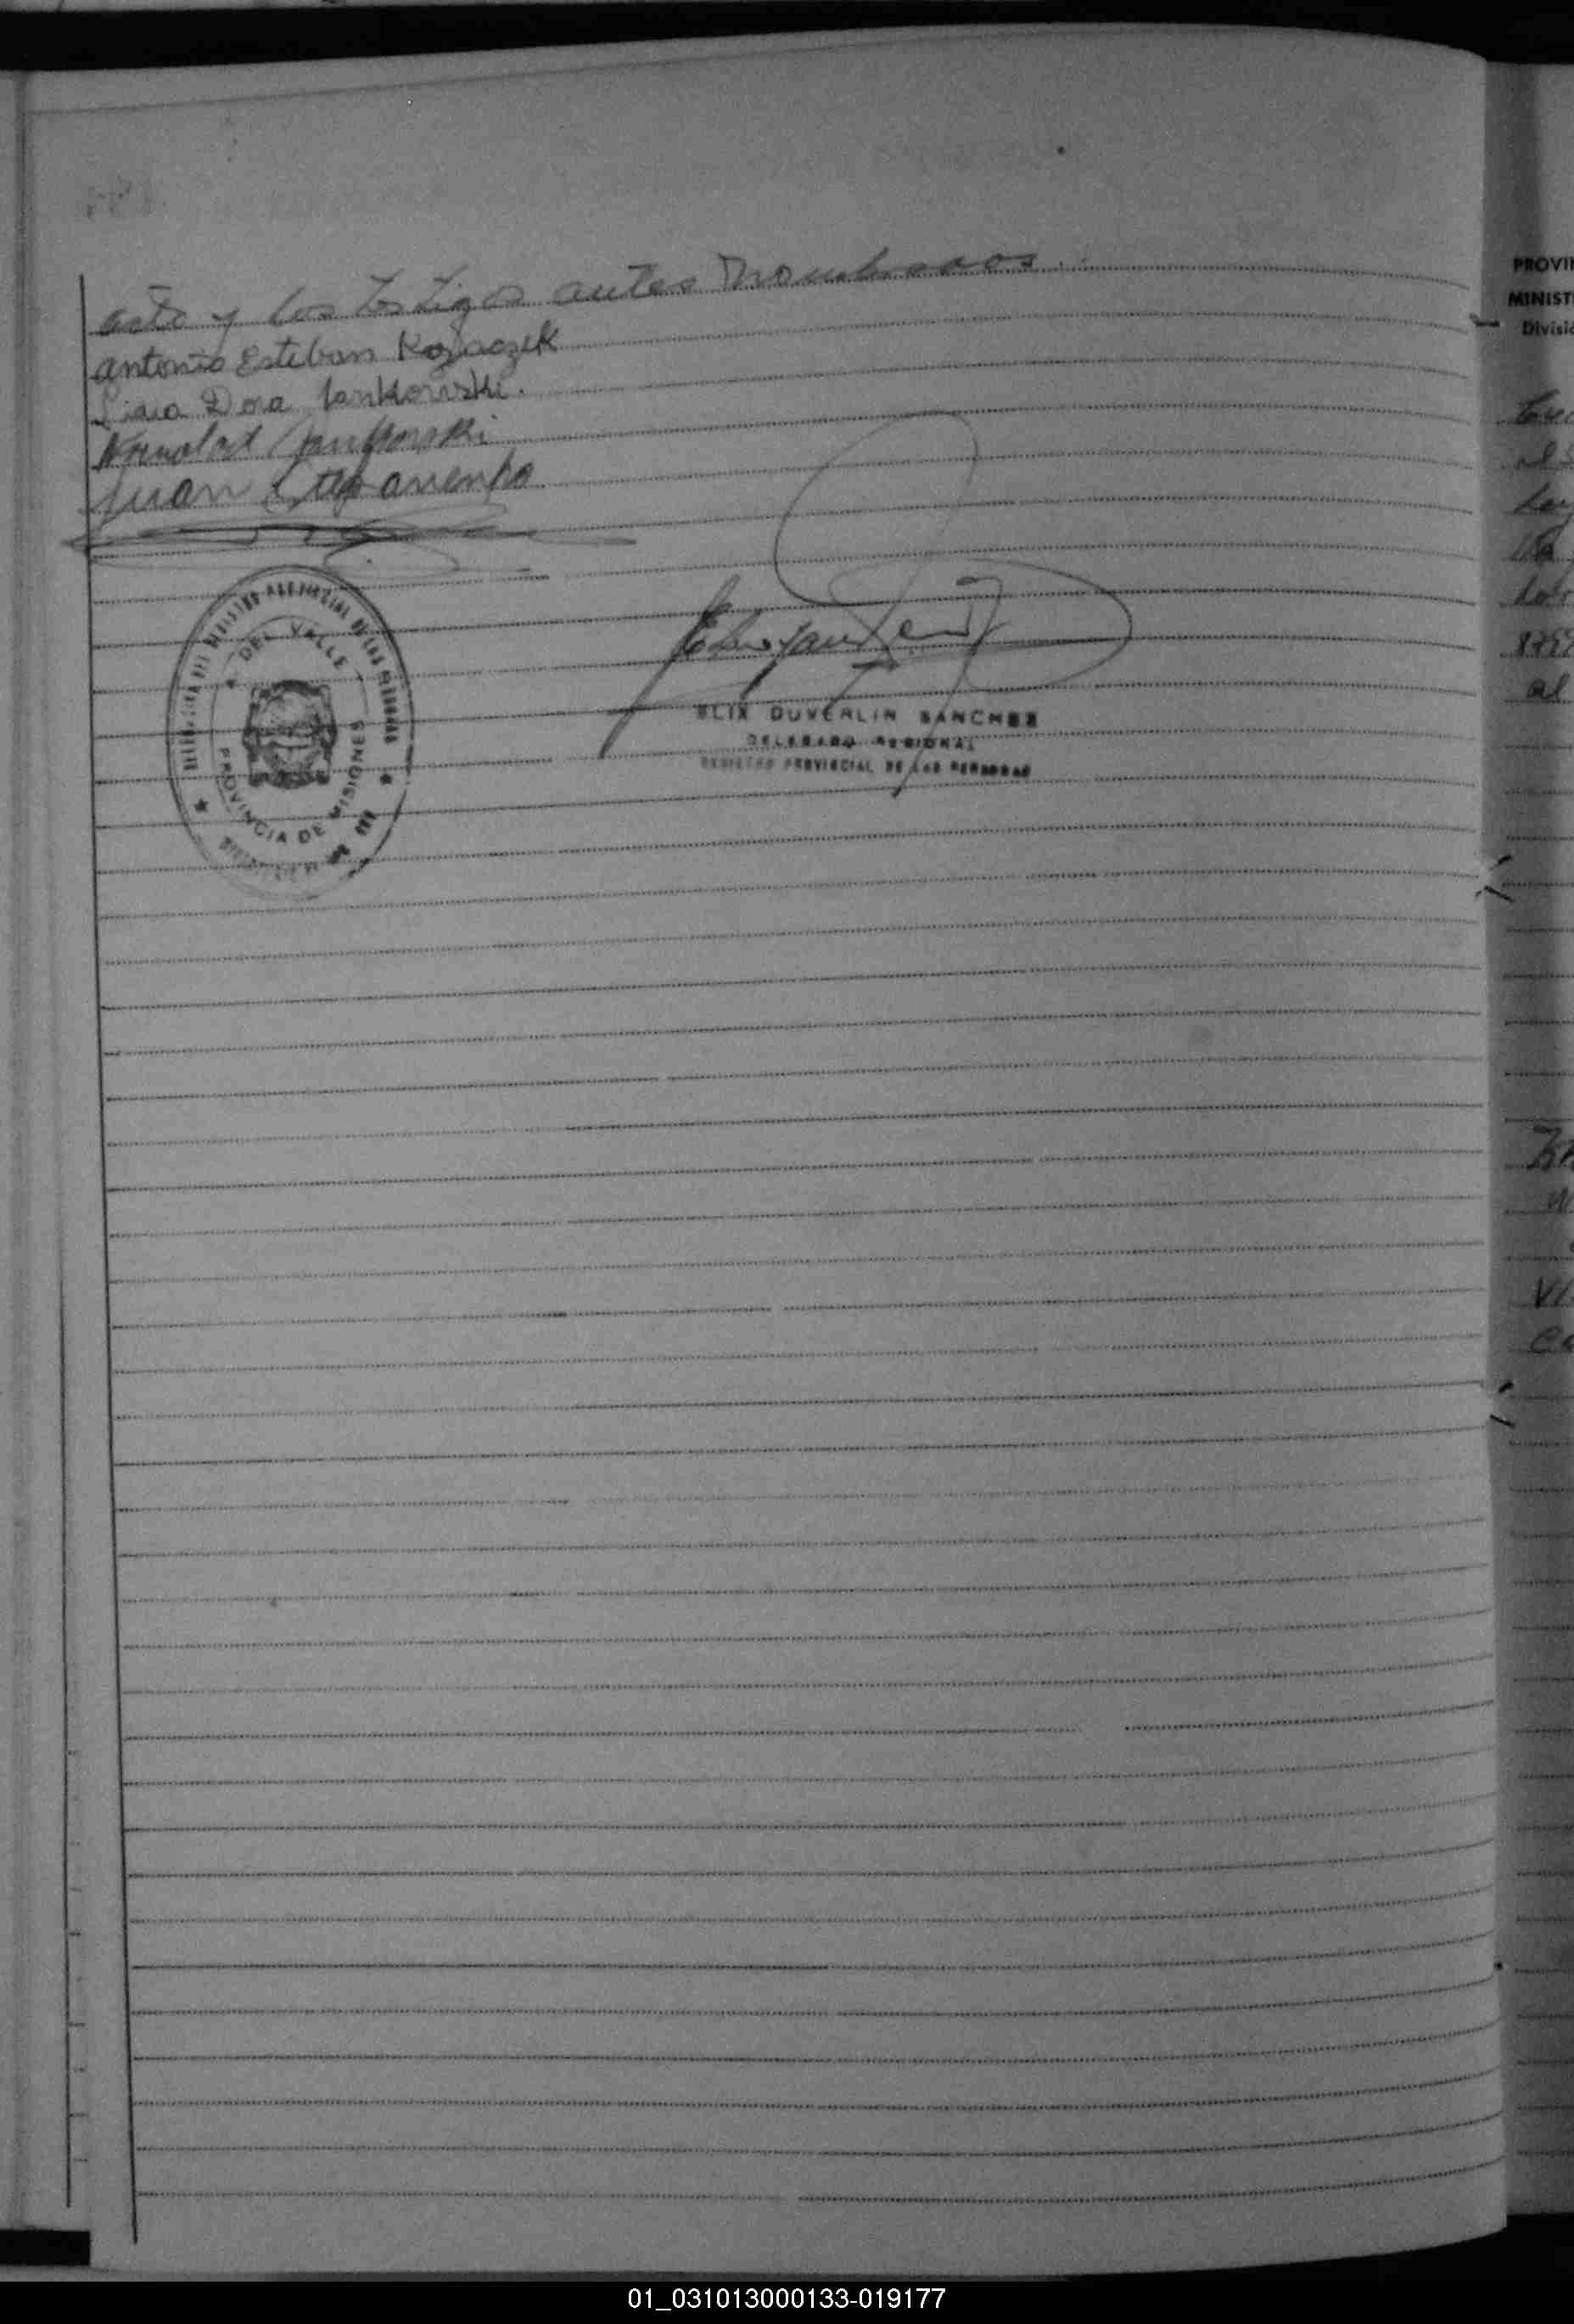 acto y los testigos antes nombrados.
Antonio Esteban Kozaczek
Dora Jankowski.
Jankowski
Juan Stepanenko
DEL VALLE
PROVINCIA DE MISIONES
ELIX DUVERLIN SANCHEZ
DELEGADO REGIONAL
REGISTRO PROVINCIAL DE LAS PERSONAS
PROVIN
MINIST
Divisió
al
VI
01_031013000133-019177